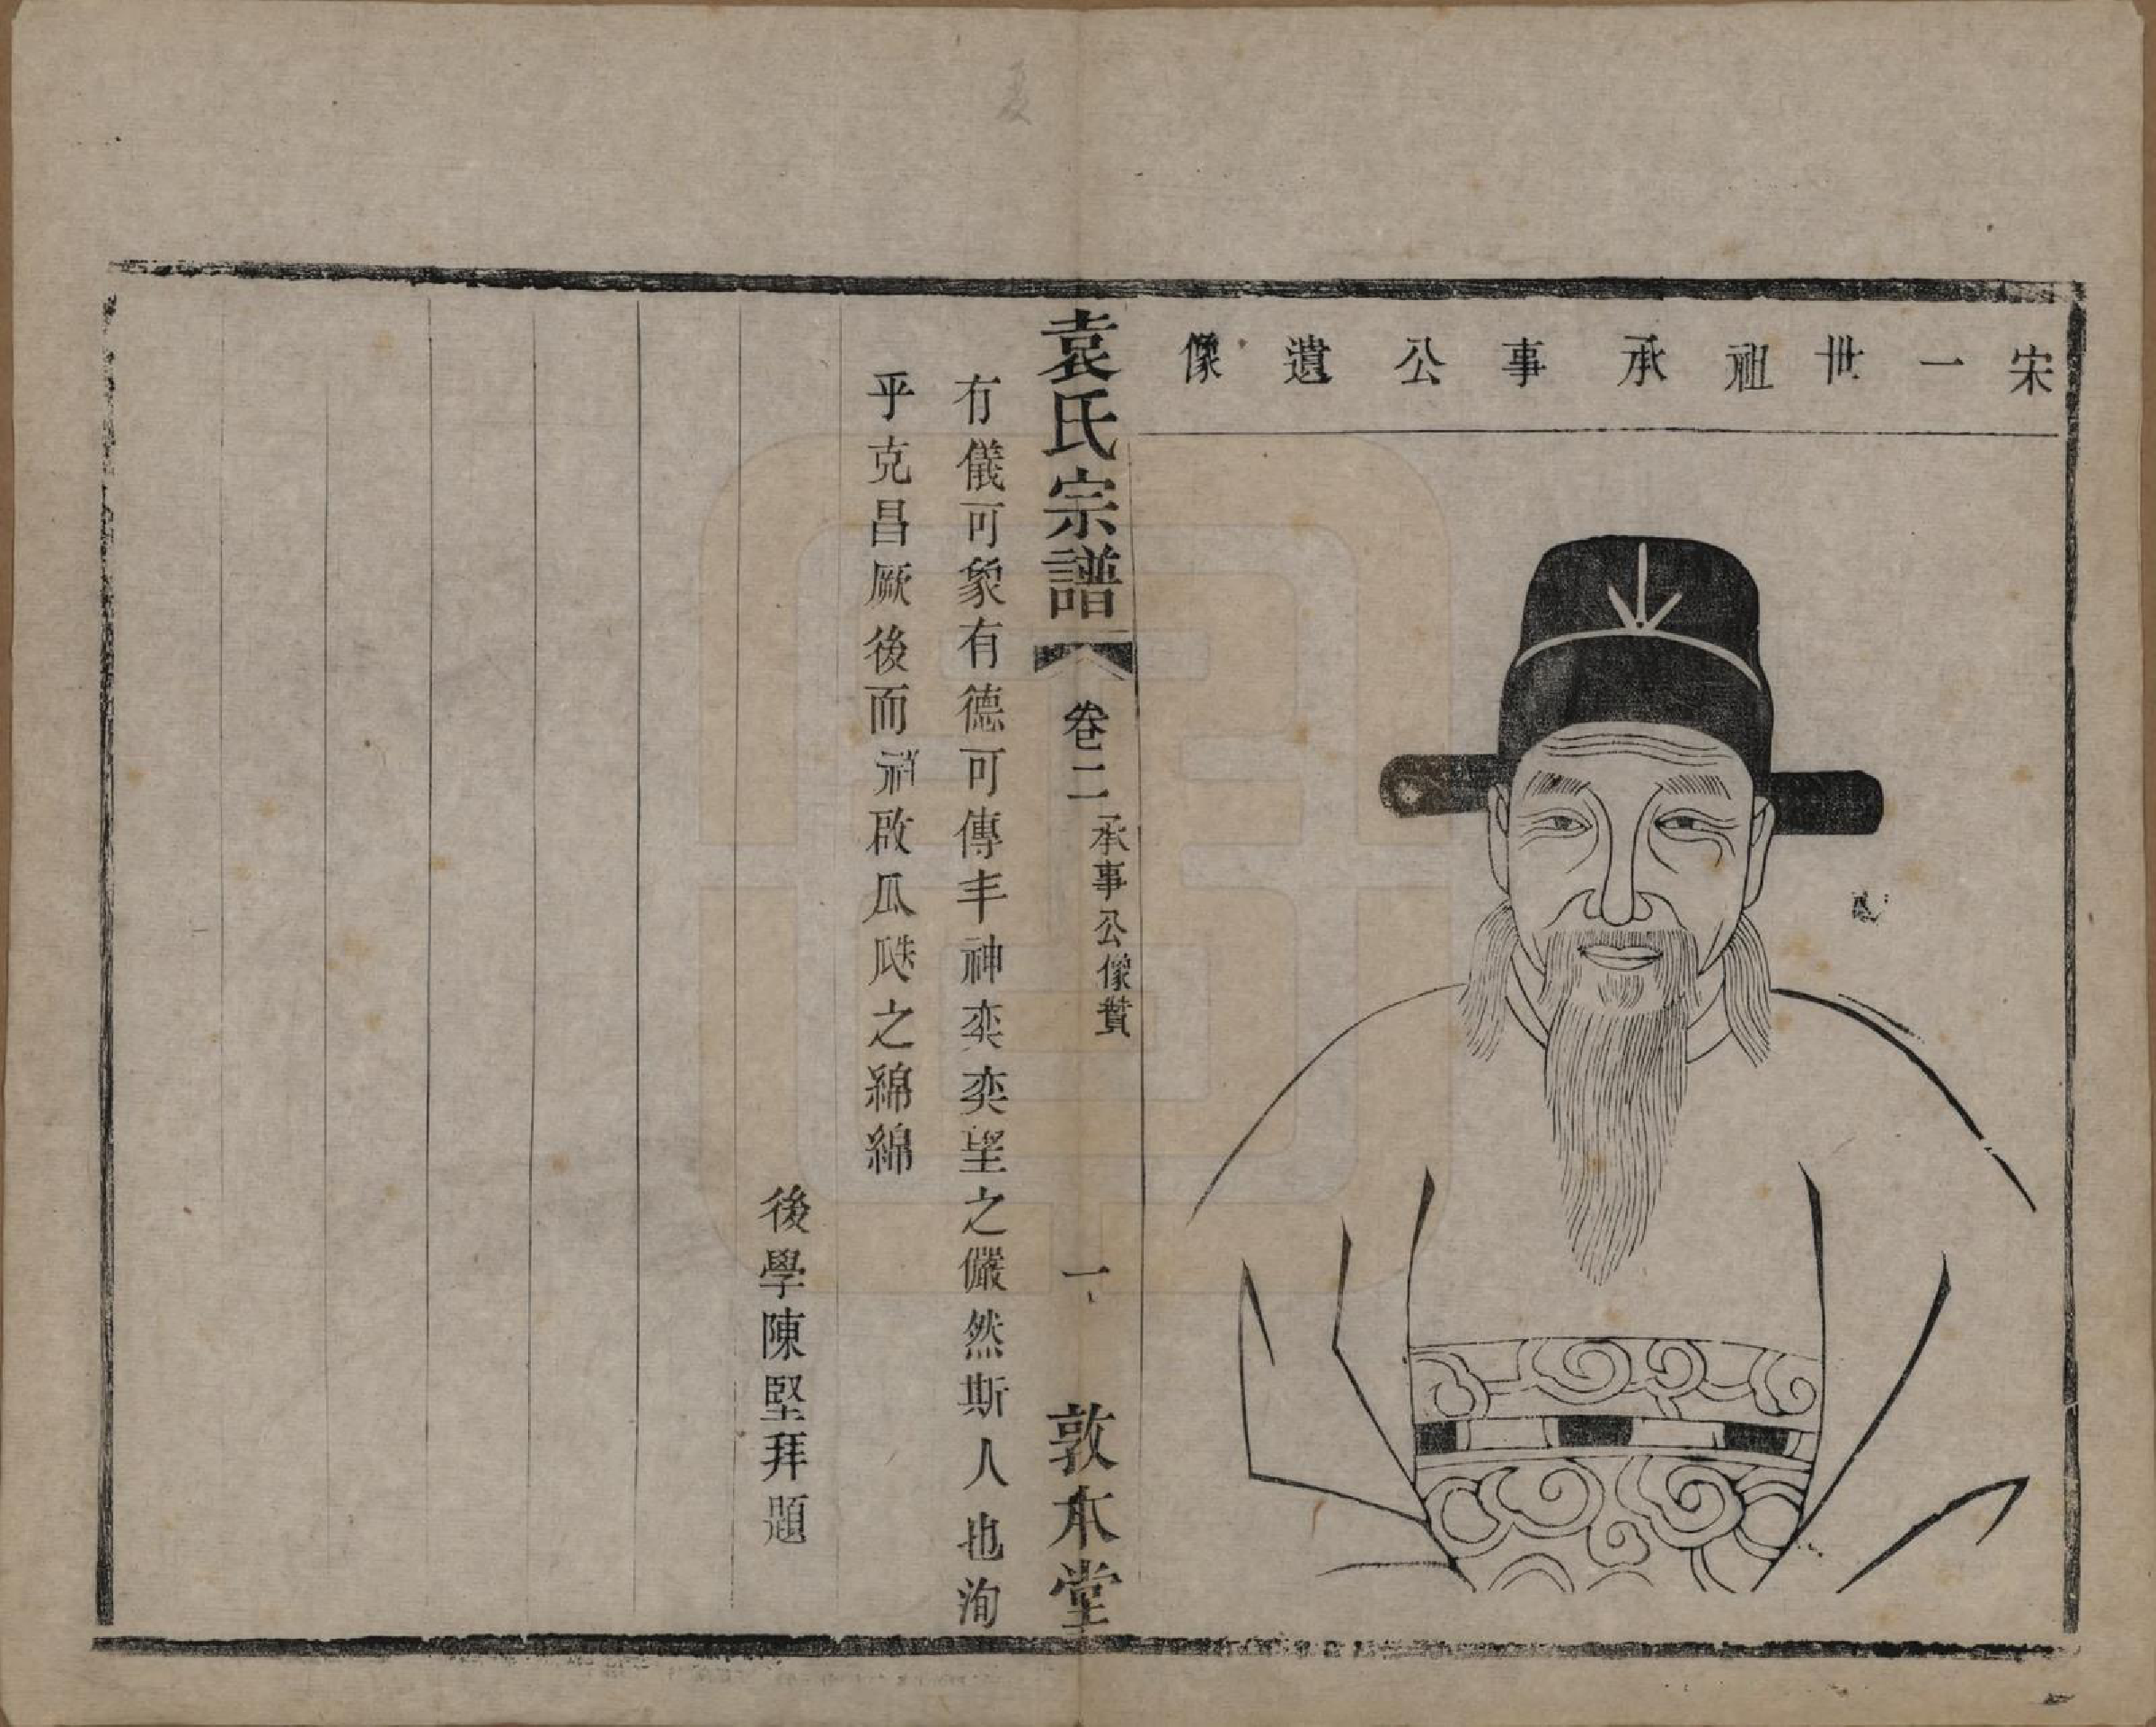 宋一世祖承事公遺像
袁氏宗譜
卷二
承事公像贊
一
敦本堂
有儀可象有德可傳丰神奕奕望之儼然斯人也洵
乎克昌厥後而肇啟瓜瓞之綿綿
後學陳堅拜題